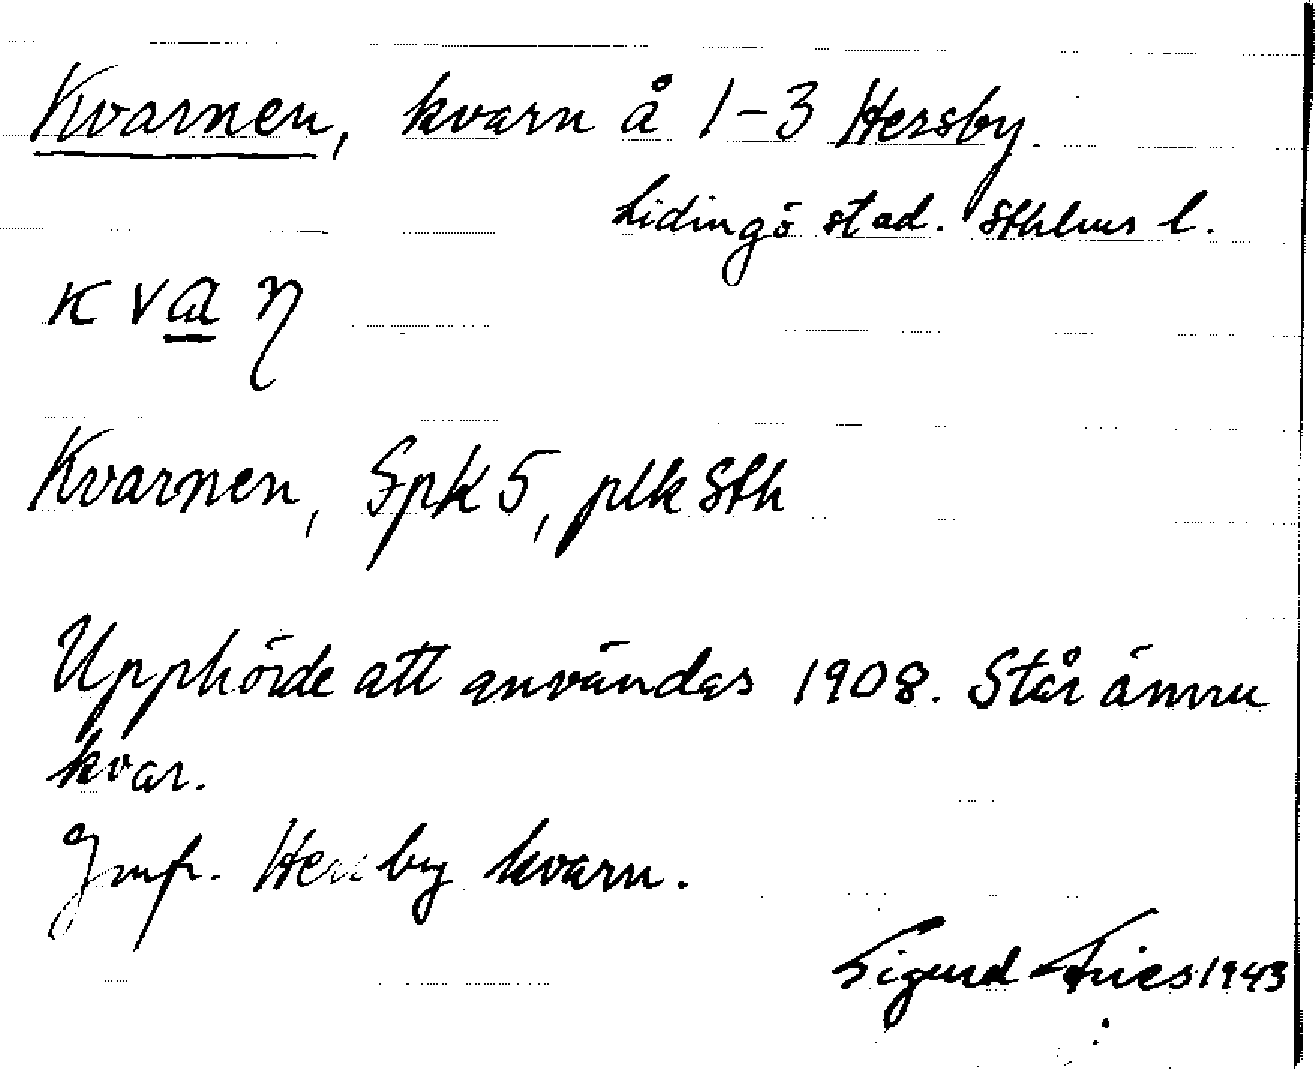 Kvarnen, kvarn å 1-3 Hersby.
Lidingö stad. Sthlms l.
kvaŋ
Kvarnen, Spk 5, plk Sth
Upphörde att användas 1908. Står ännu
kvar.
Jmfr. Hersby kvarn.
Sigurd Fries 1943